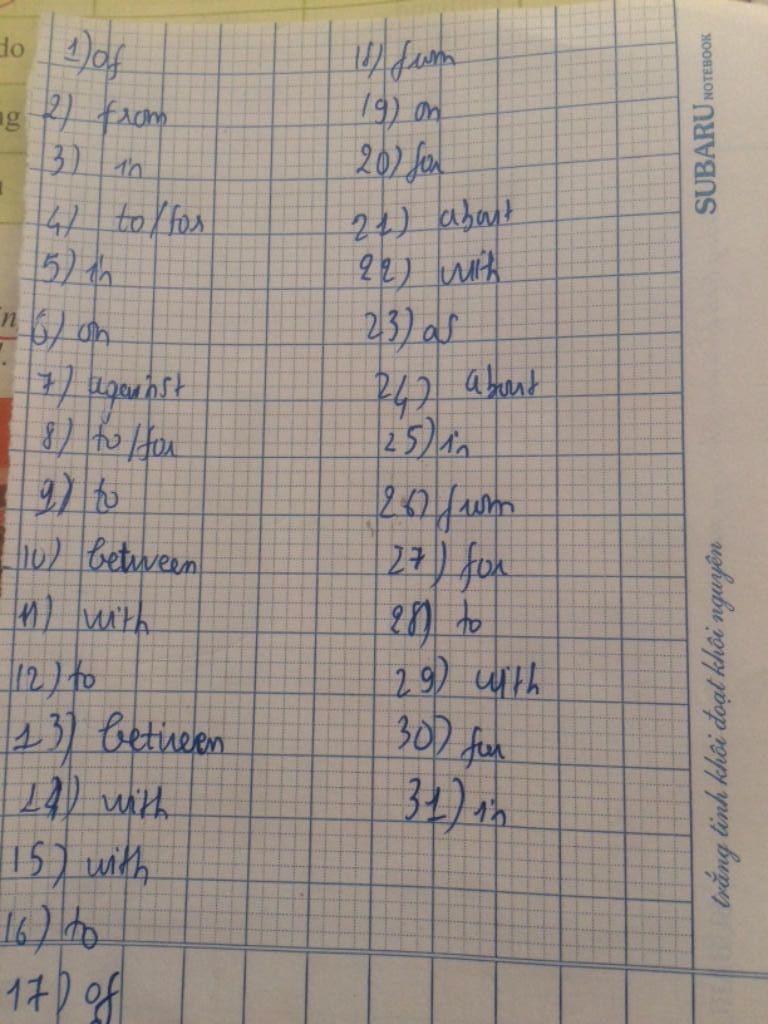 1) of
2) from
3) in
4) to/for
5) in
6) on
7) against
8) to/for
9) to
10) between
11) with
12) to
13) between
14) with
15) with
16) to
17) of
18) from
19) on
20) for
21) about
22) with
23) as
24) about
25) in
26) from
27) for
28) to
29) with
30) for
31) in
SUBARU NOTEBOOK
trắng tinh khôi đoạt khôi nguyên
do
ng
in